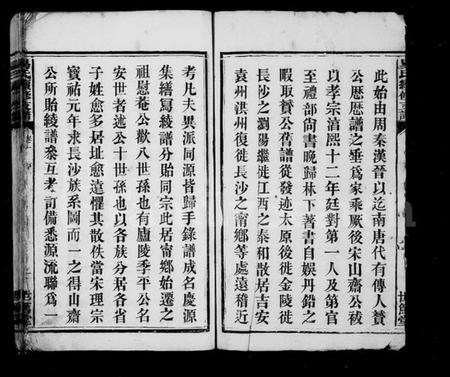 此始由周秦漢晉以迄南唐代有傳人贊
公厯厯譜之垂爲家乘厥後宋山齋公祓
以孝宗淳熙十二年廷對第一人及第官
至禮部尚書晚歸林下著書自娛丹鉛之
暇取贊公舊譜從發迹太原後徙金陵徙
長沙之瀏陽繼徙江西之泰和散居吉安
袁州洪州復徙長沙之甯鄉等處遠稽近
考凡夫異派同源皆歸手錄譜成名慶源
集繕寫綾譜分貽同宗此居甯鄉始遷之
祖慰菴公歡八世孫也有廬陵季平公名
安世者述公十世孫也以各族分居各省
子姓愈多居址愈遠懼其散佚當宋理宗
寳祐元年求長沙族系圖而一之得山齋
公所貽綾譜叅互考訂備悉源流聯爲一